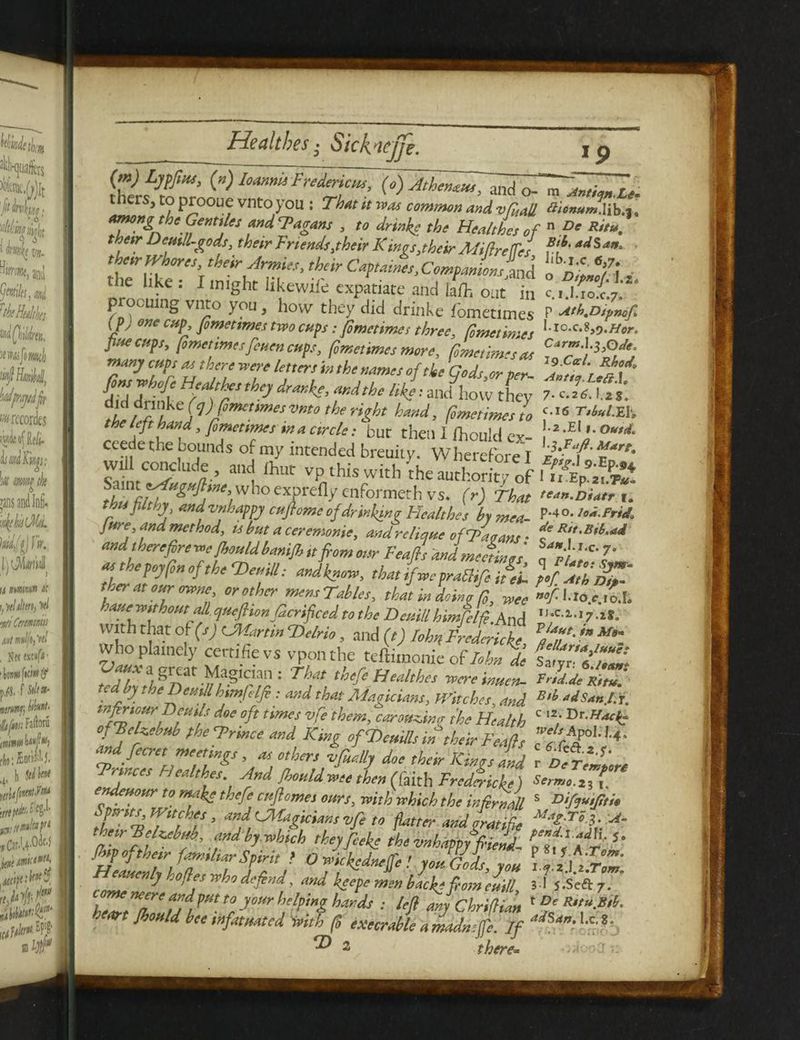 Healthes; Sicknesse.
19
(m) Lypsius, (n) Ioannis Fredericus, (o) Athenæus, and o-
thers, to prooue vnto you : That it was common and vsuall
among the Gentiles and Pagans , to drinke the Healthes of
their Deuill-gods, their Friends,their Kings,their Mistresses,
their Whores, their Armies, their Captaines,Companions,and
the like : I might likewise expatiate and lash out in
proouing vnto you, how they did drinke sometimes
(p) one cup, sometimes two cups : sometimes three, sometimes
fiue cups, sometimes seuen cups, sometimes more, sometimes as
many cups as there were letters in the names of the Gods,or per-
sons whose Healthes they dranke, and the like: and how they
did drinke (q) sometimes vnto the right hand, sometimes to
the left hand , sometimes in a circle: but then I should ex-
ceede the bounds of my intended breuity. Wherefore I
will conclude , and shut vp this with the authority of
Saint Augustine, who expresly enformeth vs. (r) That
this filthy, and vnhappy custome of drinking Healthes by mea-
sure, and method, is but a ceremonie, and relique of Pagans:
and therefore we should banish it from our Feasts and meetings,
as the poyson of the Deuill: and know, that if we practise it ei-
ther at our owne, or other mens Tables, that in doing so, wee
haue without all question sacrificed to the Deuill himselfe.And
with that of (s) Martin Delrio , and (t) Iohn Fredericke,
who plainely certifie vs vpon the testimonie of Iohn de
Vaux a great Magician : That these Healthes were inuen-
ted by the Deuill himselfe : and that Magicians, Witches, and
inferiour Deuils doe oft times vse them, carousing the Health
of Belzebub the Prince and King of Deuills in their Feasts
and secret meetings , as others vsually doe their Kings and
Princes Healthes. And should wee then (saith Fredericke)
endeuour to make these customes ours, with which the infernall
Spirits, Witches , and Magicians vse to flatter and gratifie
their Belzebub, and by which they seeke the vnhappy friend-
ship of their familiar Spirit ? O wickednesse ! you Gods, you
Heauenly hostes who defend , and keepe men backe from euill,
come neere and put to your helping hands : lest any Christian
heart should bee infatuated with so execrable a madnesse. If
D 2
there-
m Antiqn.Le-
ctionum.lib.3.
n De Ritu.
Bib. ad San.
lib.1.c. 6,7.
o Dipnos. l.2.
c.1.l.10.c.7.
p Ath.Dipnos.
l.10.c.8,9.Hor.
Carm.l.3,Ode.
19.Cæl. Rhod.
Antiq.Lect.l.
7. c.26.l.28.
c.16 Tibul.El.
l.2.El 1. Ouid.
l.3.Fast. Mart.
Epig.l 9.Ep.94
l 11 Ep.21.Pu-
tean.Diatr 1.
p.40. Ioa.Frid.
de Rit.Bib.ad
San.l.1.c. 7.
q Plato: Sym-
pos. Ath Dip-
nos. l.10.c.10.l.
11.c.2.17.28.
Plaut. in Mo-
stellaria,Iuue:
Satyr: 6.Ioan:
Frid.de Ritu.
Bib ad San.l.1.
c 12. Dr.Hack-
wels Apol.l.4.
c 6.sect.2.5.
r De Tempore
Sermo.231.
s Disquisitio
Mag.To 3. A-
pend.1.ad li. 5.
p 815.A.Tom.
1.q.2.l.2.Tom.
3.l 5.Sect 7.
t De Ritu.Bib.
ad San. l.c.8.